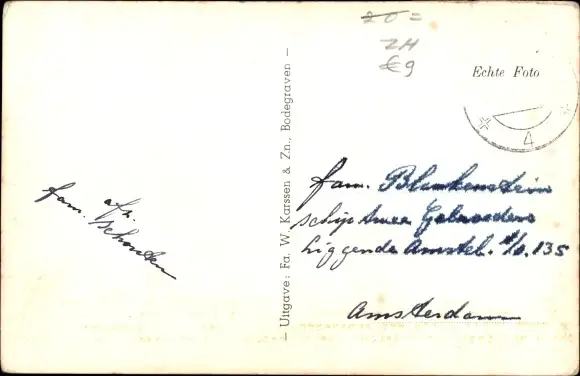 20=
ZH
€9
Echte Foto
4
— Uitgave: Fa. W. Karssen & Zn., Bodegraven —
afz.
fam. Schouten
fam. Blankenstein
schip twee Gebroeders
Liggende Amstel. t/o. 135
Amsterdam